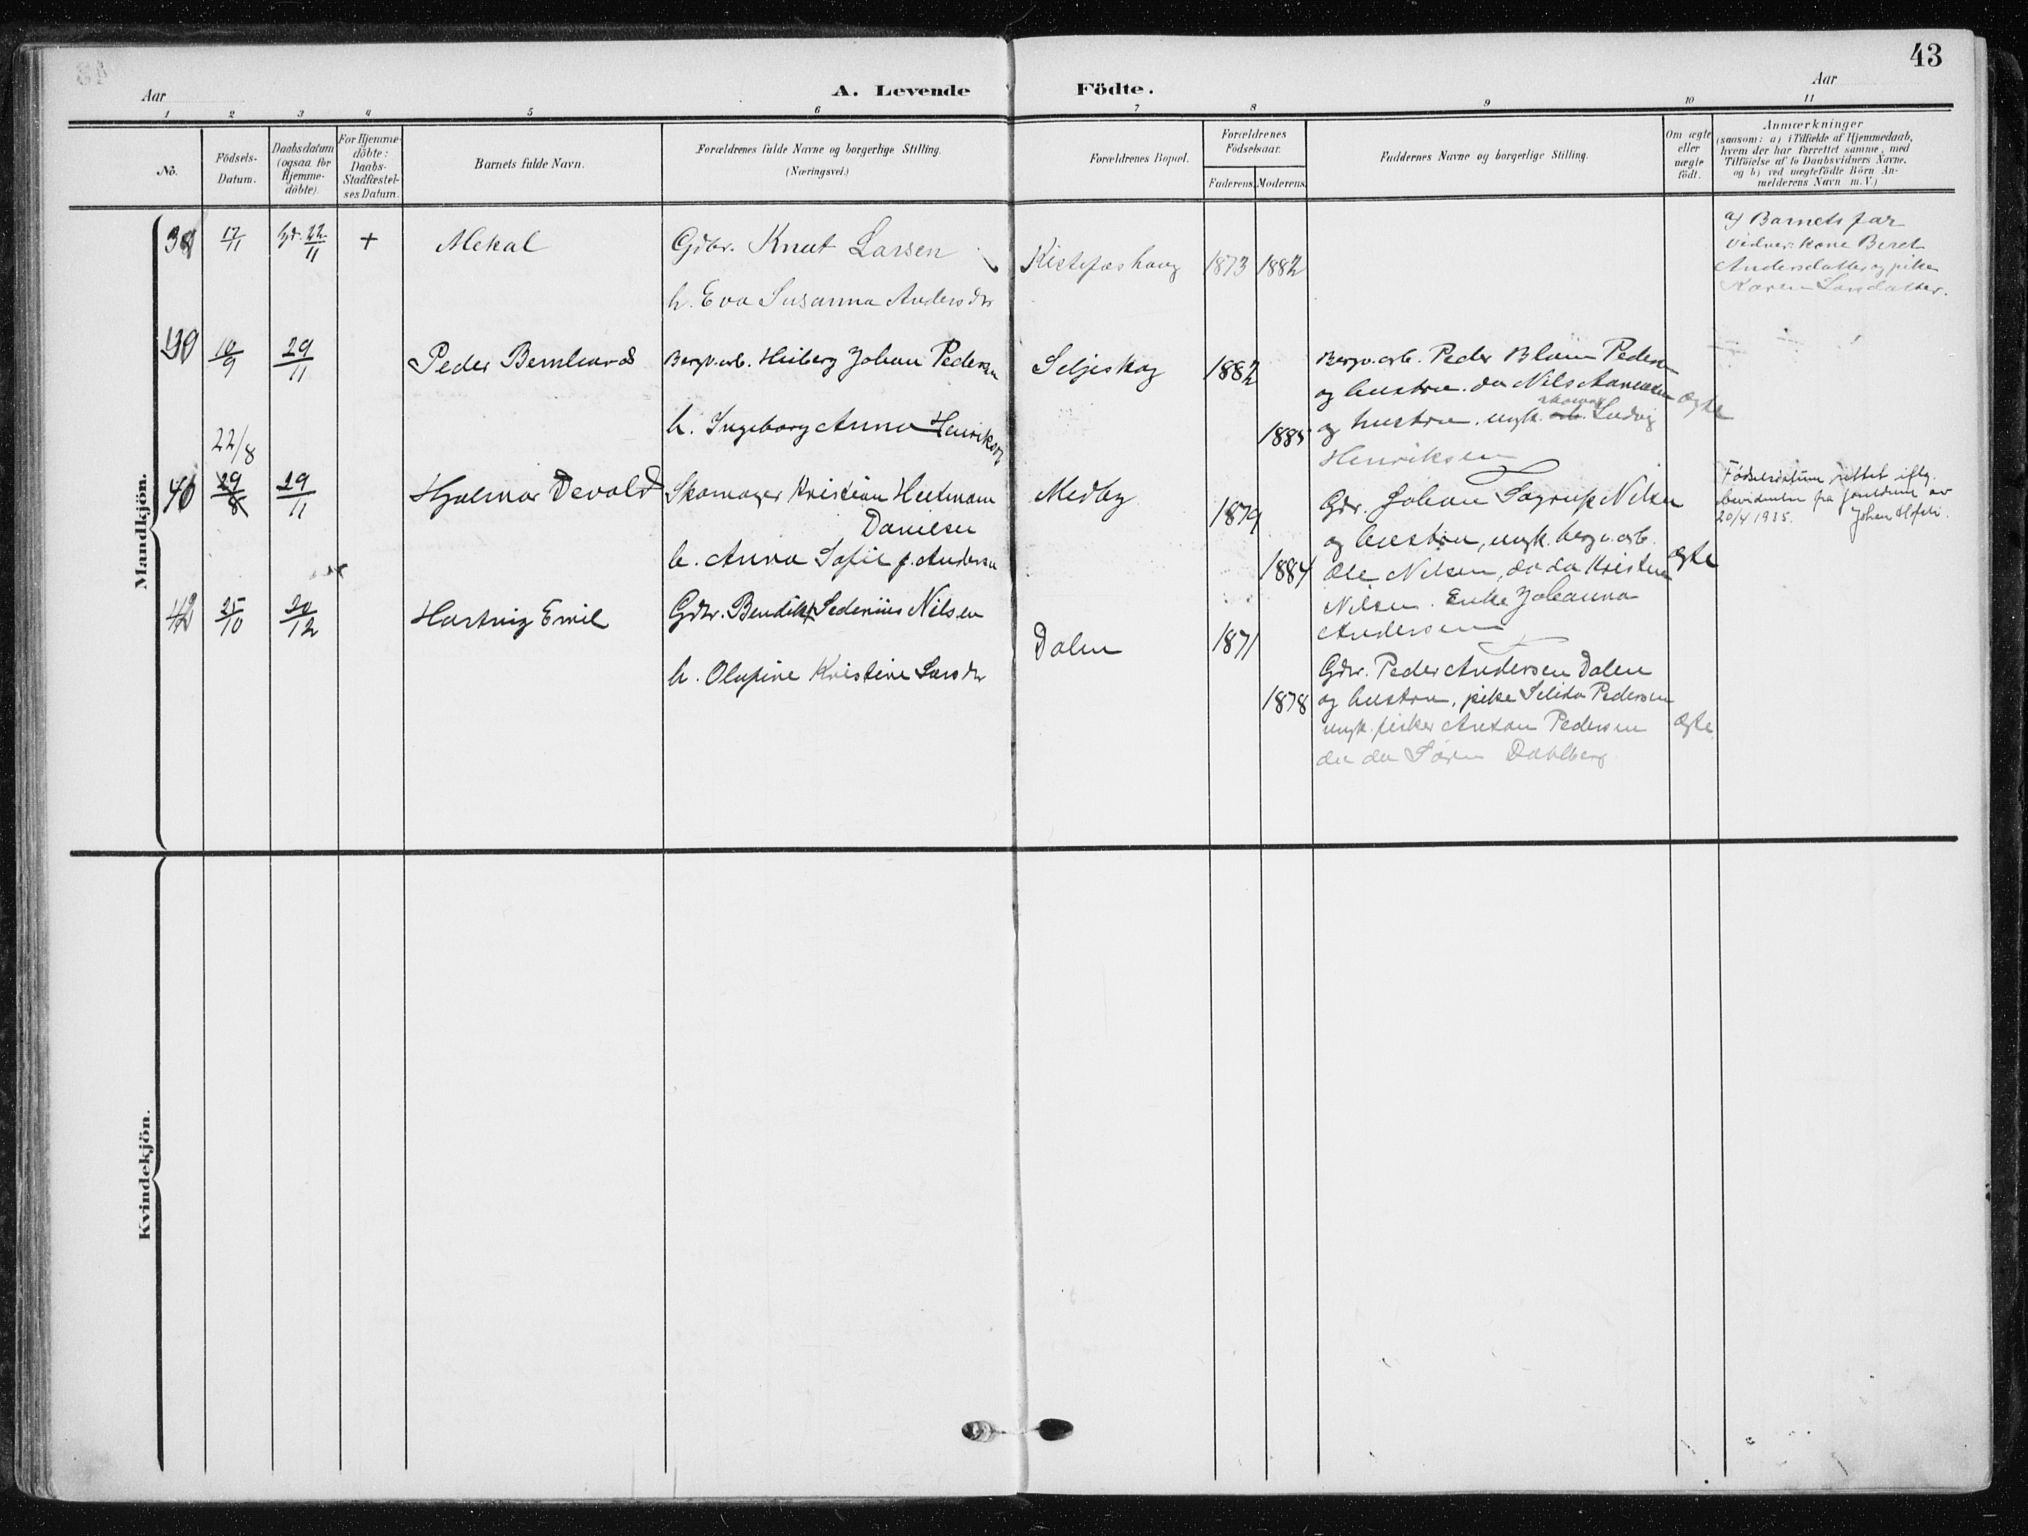 43
Aar
A. Levende Födte.
Aar
1 2 3 4 5 6 7 8 9 10 11
No.
Födsels-
Datum.
Daabsdatum
(ogsaa for
Hjemme-
döbte).
For Hjemme-
döbte:
Daabs-
Stadfæstel-
ses Datum.
Barnets fulde Navn.
Forældrenes fulde Navne og borgerlige Stilling.
(Næringsvei.)
Forældrenes Bopæl.
Forældrenes
Födselsaar.
Faderens. Moderens.
Faddernes Navne og borgerlige Stilling.
Om ægte
eller
uægte
födt.
Anmærkninger
(saasom: a) i Tilfælde af Hjemmedaab,
hvem der har forrettet samme, med
Tilföielse af to Daabsvidners Navne,
og b) ved uægtefödte Börn An-
melderens Navn m. V.)
Mandkjön.
17/11 22/11 + Mekal
Gdbr. Knut Larsen
h. Eva Susanna Andersdtr
1873 1882
a) Barnets far
vidner: kone Beret
Andersdatter og pike
Karen Larsdatter.
10/9 29/11 Peder Bernhard
Bergv.arb. Heiberg Johan Pedersen
h. Ingeborg Anna
Seljeskog 1882
1885
Bergv.arb. Peder Pedersen
og hustru. do Nils
og hustru. ungk. arb. skomag. Ludvig
Henriksen
Ægte
40 22/8 29/8 29/11 Hjalmar Devold
Skomager Kristian
Danielsen
h. Anna Sofie f. Andersen
Medby 1879
1884
Gdr. Johan Nilsen
og hustru, ungk. bergv.arb.
Ole Nilsen, do do
Nilsen. Enke Johanna
Andersen
Ægte
Fødselsdatum rettet
fra av
20/4 1935. Johan
42 25/10 20/12 Hartvig Emil
Gdbr. Bendikt Nilsen
h. Olufine Kristine Larsdtr
Dalen 1871
1878
Gdbr. Peder Andersen Dalen
og hustru, pike Pedersen
ungk. fisker Anton Pedersen
do do Sören Dahlberg
Ægte
Kvindekjön.